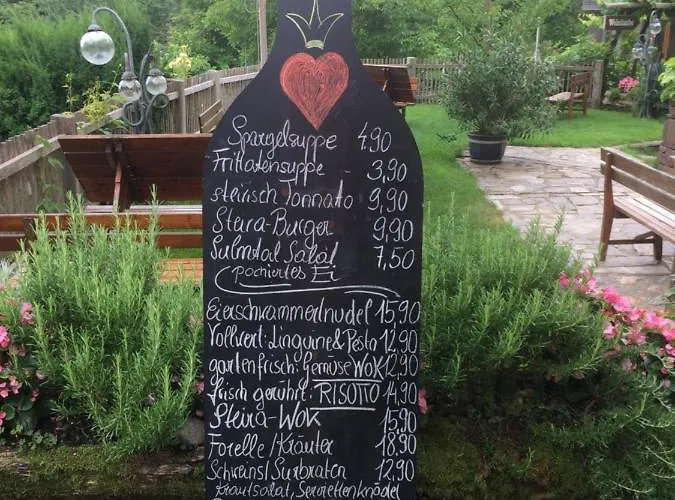 Spargelsuppe 4.90
Frittatensuppe - 3,90
steirisch Tonnato 9,90
Steira-Burger 9,90
Sulmtal Salat 7,50
(pochiertes Ei
Eierschwammerlnudel 15,90
Vollwert: Linguine & Pesto 12,90
gartenfrisch: Gemüse WOK 12,90
frisch gerührt: RISOTTO 14,90
Steira-Wok 15,90
Forelle/Kräuter 18,90
Schweinsl Surbraten 12,90
Krautsalat, Serviettenknödel